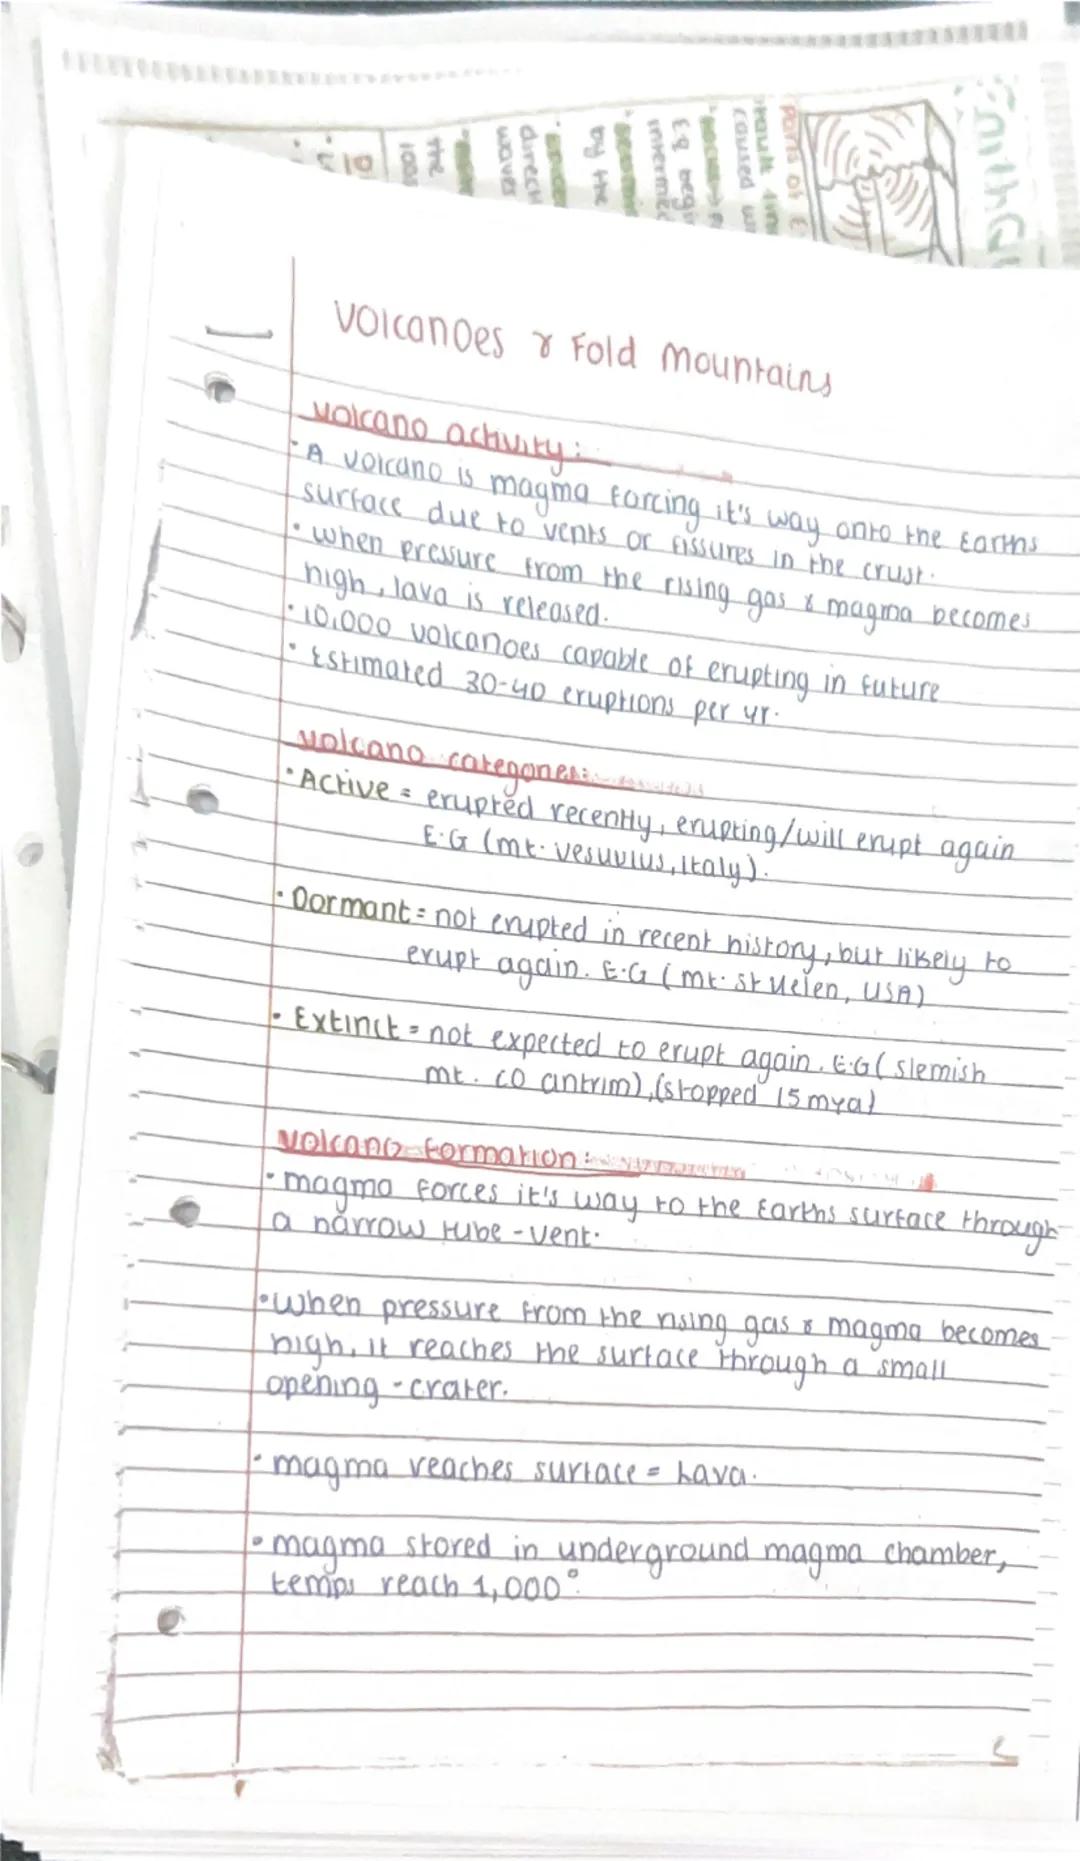 Volcanoes & Fold Mountains
Volcano activity:
· A volcano is magma forcing it's way onto the Earths
surface due to vents or fissures in the crust.
· When pressure from the rising gas & magma becomes
high, lava is released.
· 10,000 volcanoes capable of erupting in future
· Estimated 30-40 eruptions per yr.
Volcano categories:
· Active = erupted recently, erupting/will erupt again
E.G (mt. Vesuvius, Italy).
· Dormant = not erupted in recent history, but likely to
erupt again. E.G (mt. St Helen, USA)
· Extinct = not expected to erupt again. E.G (slemish
mt. CO antrim), (stopped 15 mya)
Volcano formation:
· magma forces it's way to the Earths surface through
a narrow tube - vent.
· When pressure from the rising gas & magma becomes
high, it reaches the surface through a small
opening - crater.
· magma reaches surface = Lava.
· magma stored in underground magma chamber,
temps reach 1,000°.
Parts of E
caused
E.g begi
by the
direct
waves
the